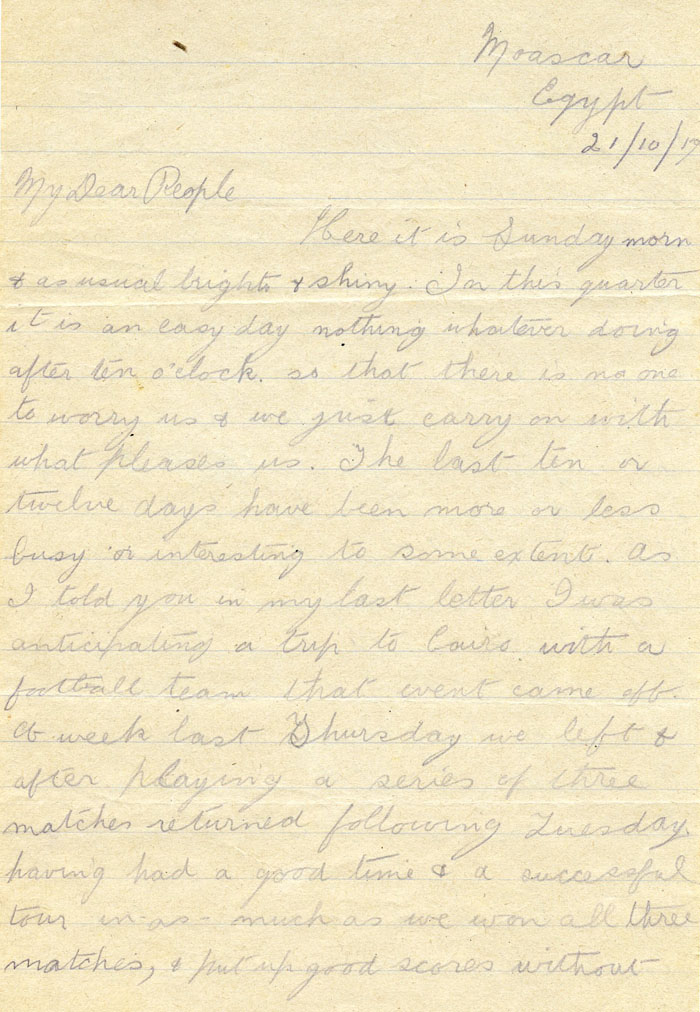 Moascar
Egypt
21/10/17
My Dear People
Here it is Sunday morn
& as usual bright & shiny. In this quarter
it is an easy day nothing whatever doing
after ten o'clock. so that there is no one
to worry us & we just carry on with
what pleases us. The last ten or
twelve days have been more or less
busy or interesting to some extent. As
I told you in my last letter I was
anticipating a trip to Cairo with a
football team that event came off.
A week last Thursday we left &
after playing a series of three
matches returned following Tuesday.
having had a good time & a successful
tour in-as-much as we won all three
matches, & put up good scores without